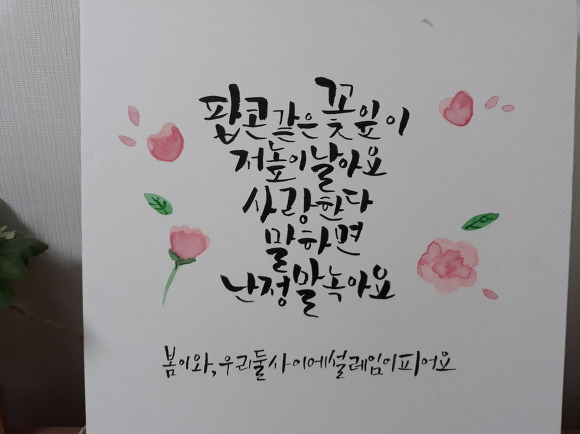 팝콘 같은 꽃잎이
저 높이 날아요
사랑한다
말하면
난 정말 녹아요
봄이 와, 우리 둘 사이에 설레임이 피어요